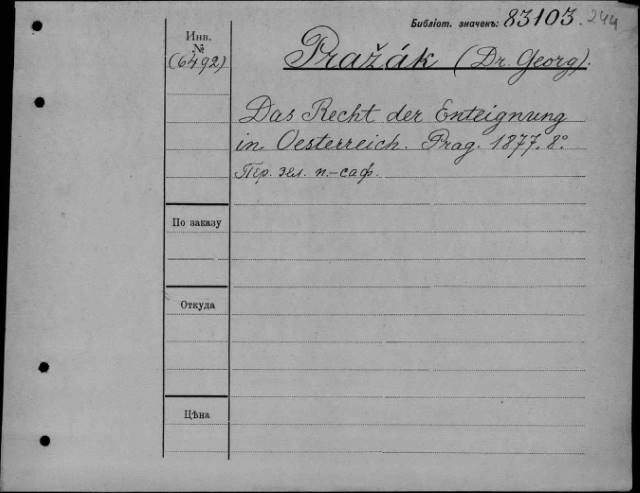 Библіот. значекъ: 83103. 244
Инв.
№
(6492)
Pražák (Dr. Georg).
Das Recht der Enteignung
in Oesterreich. Prag. 1877. 8º.
Пер. зел. п.-саф.
По заказу
Откуда
Цѣна